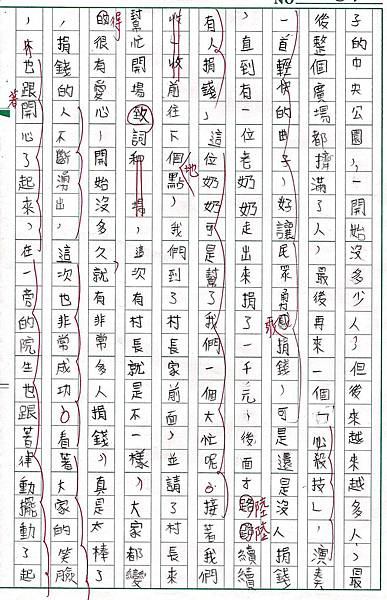 NO
子的中央公園，一開始沒多少人，但後來越來越多人，最
後整個廣場都擠滿了人，最後再來一個「必殺技」，演奏
一首輕快的曲子，好讓民眾勇感捐錢，可是還是沒人捐錢
敢
，直到有一位老奶奶走出來捐了一千元，後面才續續
陸陸
有人捐錢，這位奶奶可是幫了我們一個大忙呢。接著我們
收一收前往下個點，我們到了村長家前面，並請了村長來
地
幫忙開場致詞和揚，這次有村長就是不一樣，大家都變
的很有愛心，開始沒多久就有非常多人捐錢，真是太棒了
得
，捐錢的人不斷湧出，這次也非常成功。看著大家的笑臉
，來也跟開心了起來，在一旁的院生也跟著律動擺動了起
著